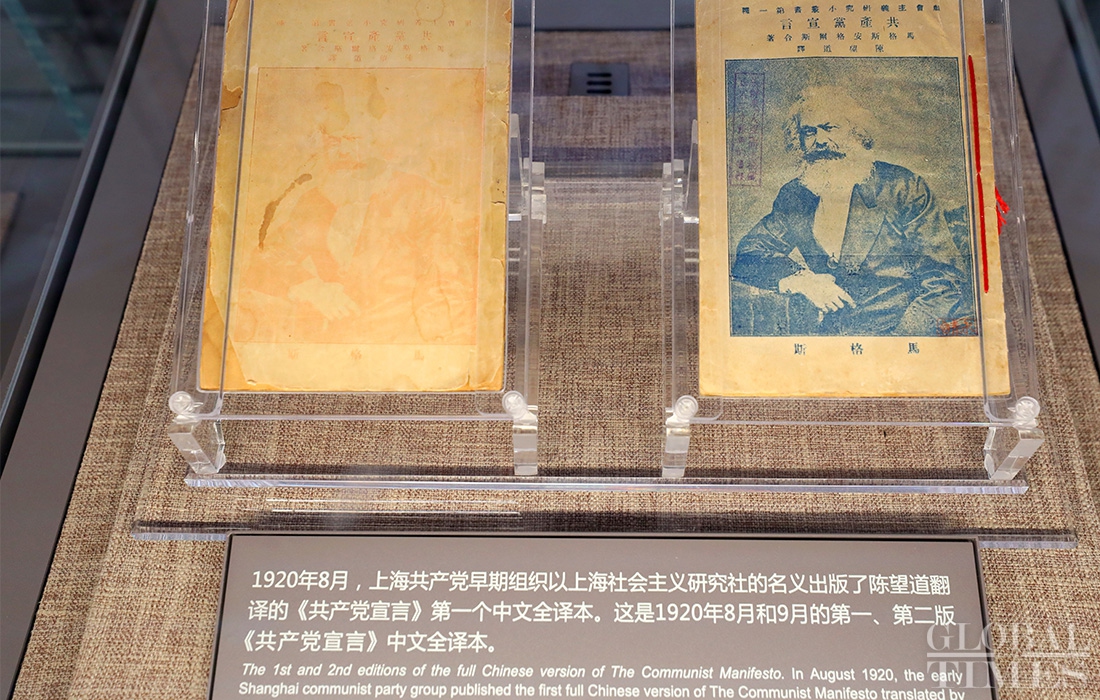 共黨產宣言
社會主義研究小叢書第一種
共產黨宣言
馬格斯安格爾斯合著
陳望道譯
馬格斯
1920年8月，上海共产党早期组织以上海社会主义研究社的名义出版了陈望道翻
译的《共产党宣言》第一个中文全译本。这是1920年8月和9月的第一、第二版
《共产党宣言》中文全译本。
The 1st and 2nd editions of the full Chinese version of The Communist Manifesto. In August 1920, the early
Shanghai communist party group published the first full Chinese version of The Communist Manifesto translated by
GLOBAL
TIMES